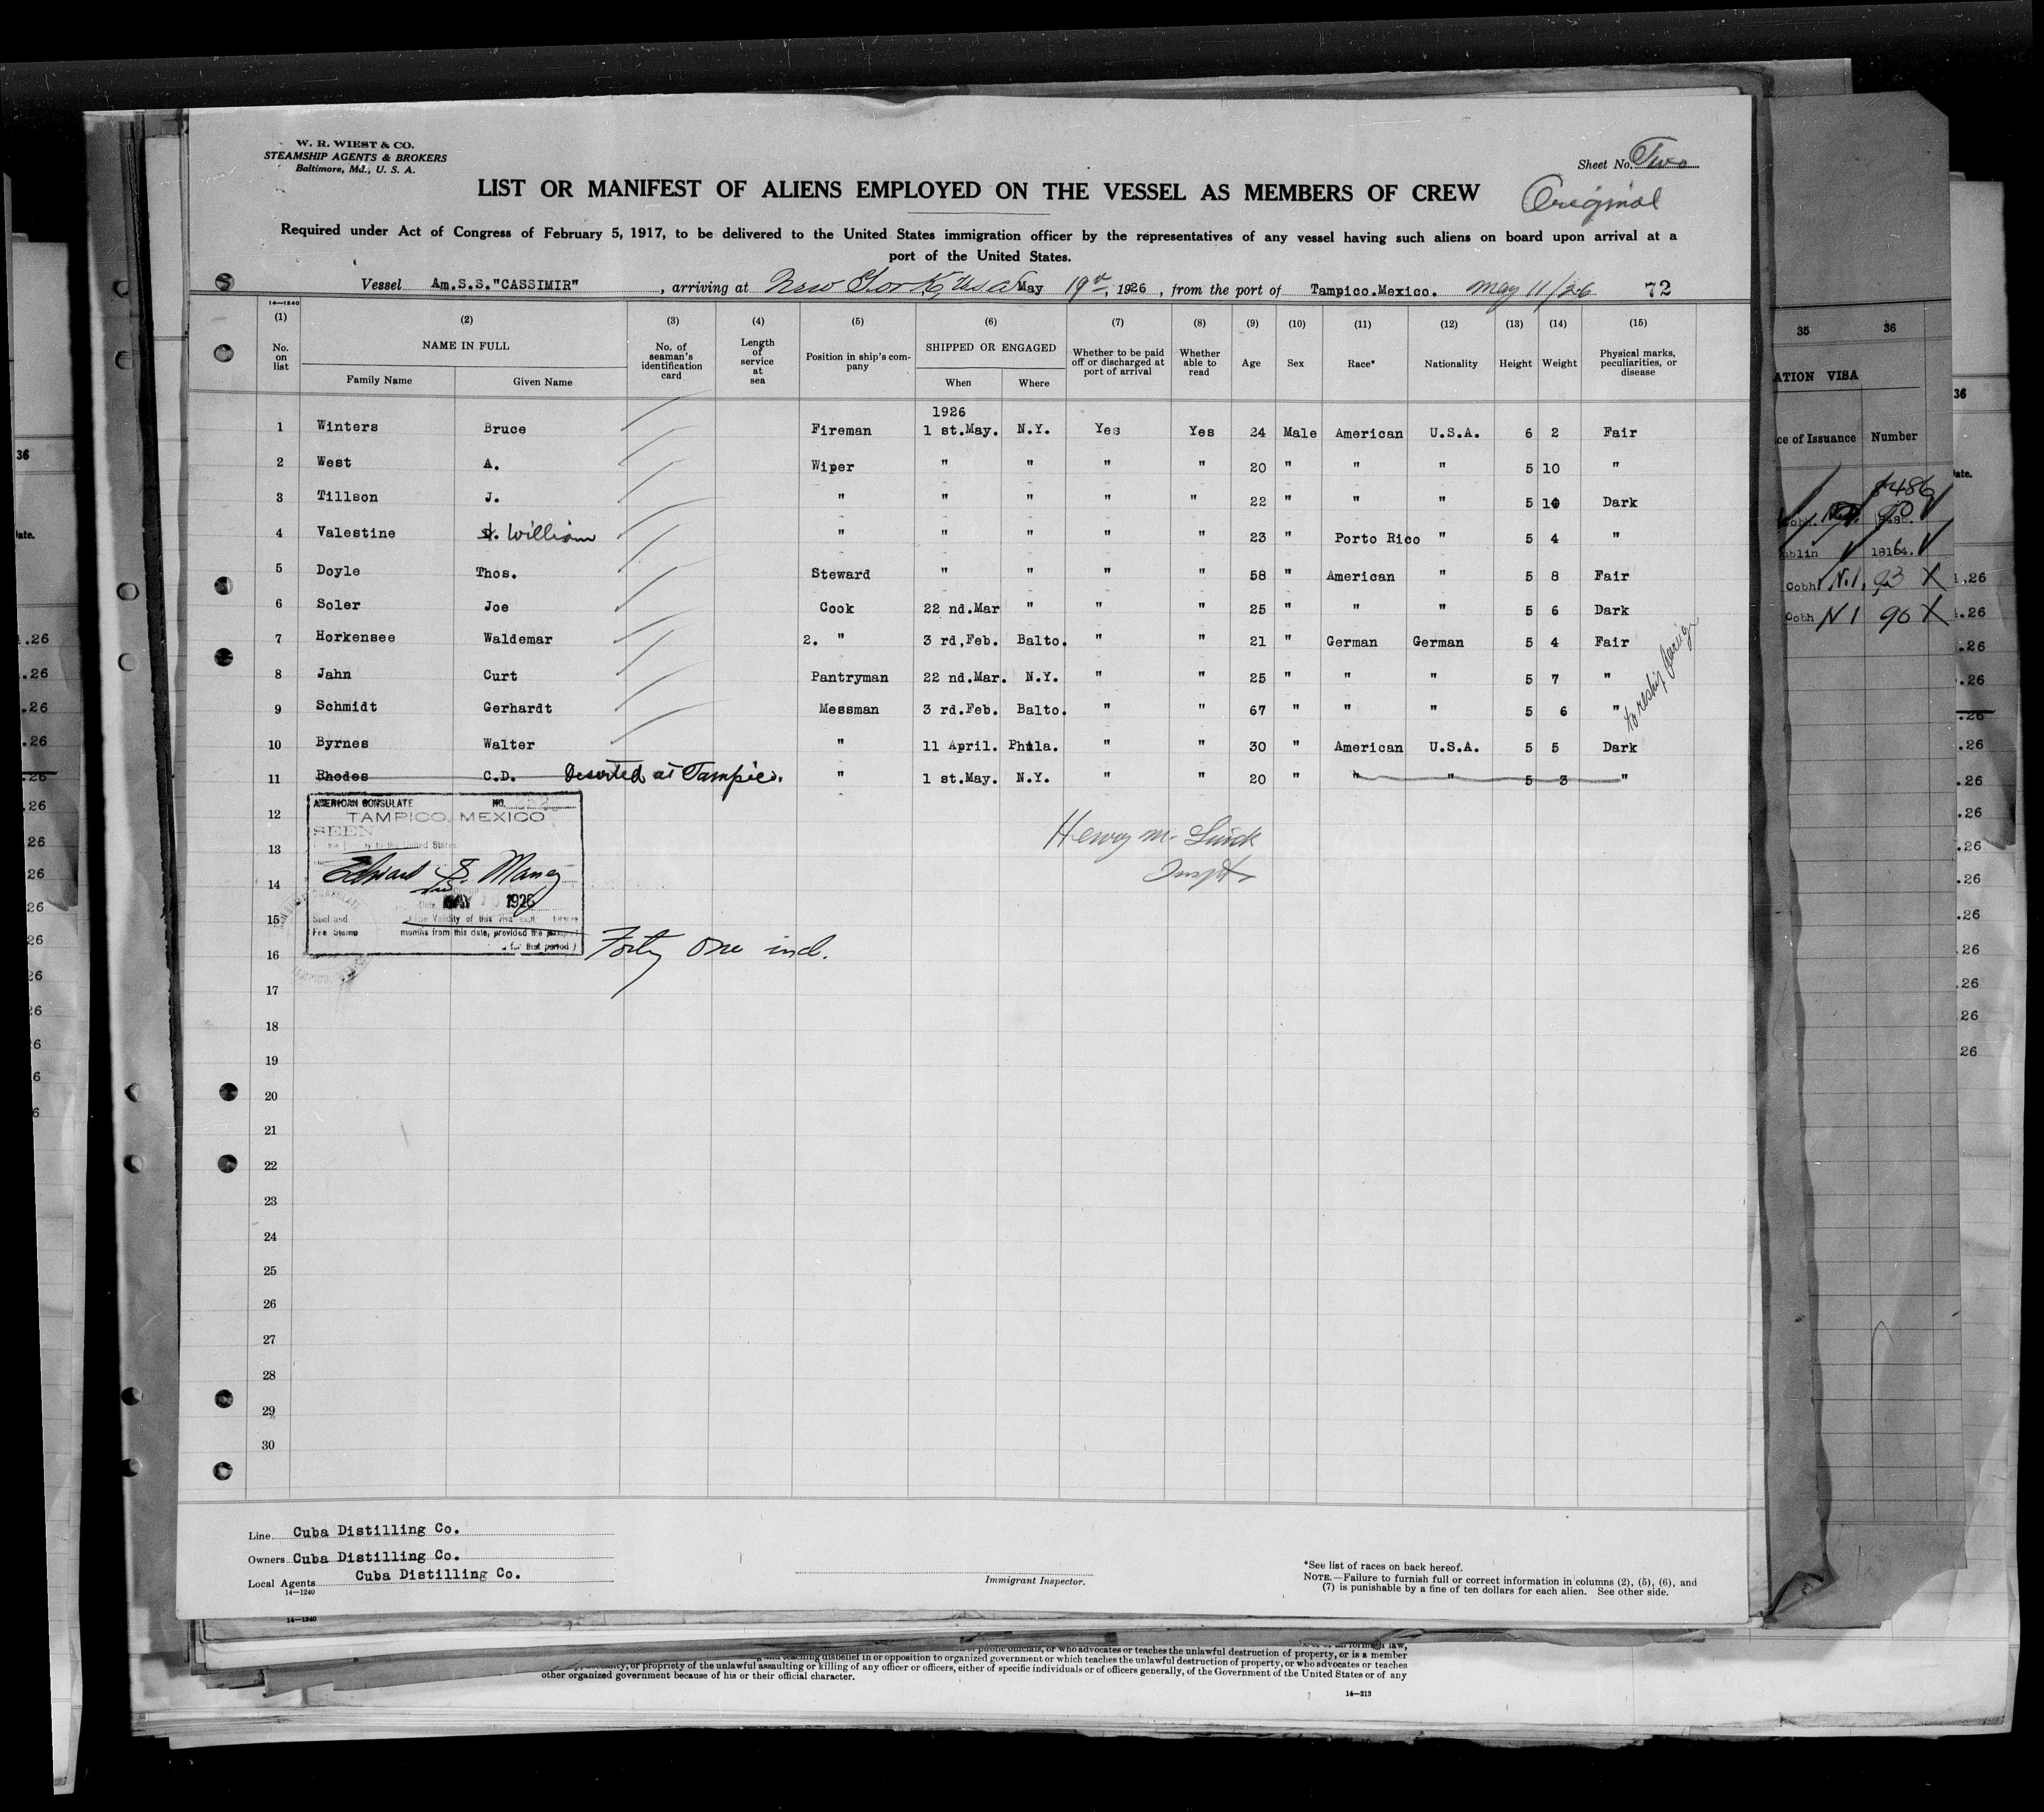 W. R. WIEST & CO.
STEAMSHIP AGENTS & BROKERS
Baltimore, Md., U. S. A.
Sheet No. Two
LIST OR MANIFEST OF ALIENS EMPLOYED ON THE VESSEL AS MEMBERS OF CREW
Original
Required under Act of Congress of February 5, 1917, to be delivered to the United States immigration officer by the representatives of any vessel having such aliens on board upon arrival at a
port of the United States.
Vessel Am.S.S."CASSIMIR" , arriving at New York, May 19th, 1926 , from the port of Tampico.Mexico. May 11/26 72
14—1240
(1) (2) (3) (4) (5) (6) (7) (8) (9) (10) (11) (12) (13) (14) (15)
No. on list NAME IN FULL Family Name Given Name No. of seaman's identification card Length of service at sea Position in ship's company SHIPPED OR ENGAGED When Where Whether to be paid off or discharged at port of arrival Whether able to read Age Sex Race* Nationality Height Weight Physical marks, peculiarities, or disease
1926
1 Winters Bruce Fireman 1 st.May. N.Y. Yes Yes 24 Male American U.S.A. 6 2 Fair
2 West A. Wiper " " " " 20 " " " 5 10 "
3 Tillson J. " " " " " 22 " " " 5 10 Dark
4 Valestine William " " " " " 23 " Porto Rico " 5 4 "
5 Doyle Thos. Steward " " " " 58 " American " 5 8 Fair
6 Soler Joe Cook 22 nd.Mar " " " 25 " " " 5 6 Dark
7 Horkensee Waldemar 2. " 3 rd,Feb. Balto. " " 21 " German German 5 4 Fair
8 Jahn Curt Pantryman 22 nd.Mar. N.Y. " " 25 " " " 5 7 "
9 Schmidt Gerhardt Messman 3 rd.Feb. Balto. " " 67 " " " 5 6 "
to reship foreign
10 Byrnes Walter " 11 April. Phila. " " 30 " American U.S.A. 5 5 Dark
11 Rhodes C.D. Deserted at Tampico. " 1 st.May. N.Y. " " 20 " " " 5 3 "
12
13
14
15
16
17
18
19
20
21
22
23
24
25
26
27
28
29
30
AMERICAN CONSULATE NO.
TAMPICO, MEXICO
SEEN
to the United States
Edward S. Maney
Date MAY 1926
Seal and
Fee Stamp
The Validity of this visa
months from this date, provided the
for that period)
Forty One incl.
Henry M.
Inspt
Line Cuba Distilling Co.
Owners Cuba Distilling Co.
Local Agents Cuba Distilling Co.
14—1240
Immigrant Inspector.
*See list of races on back hereof.
NOTE.—Failure to furnish full or correct information in columns (2), (5), (6), and
(7) is punishable by a fine of ten dollars for each alien. See other side.
14—1240
35 36
ATION VISA
ce of Issuance Number
8486
blin 18164.
Cobh N.I. 93 X
Cobh N I 90 X
or who advocates or teaches the unlawful destruction of property, or is a member
teaching disbelief in or opposition to organized government or which teaches the unlawful destruction of property, or who advocates or teaches
or propriety of the unlawful assaulting or killing of any officer or officers, either of specific individuals or of officers generally, of the Government of the United States or of any
other organized government because of his or their official character.
14—213